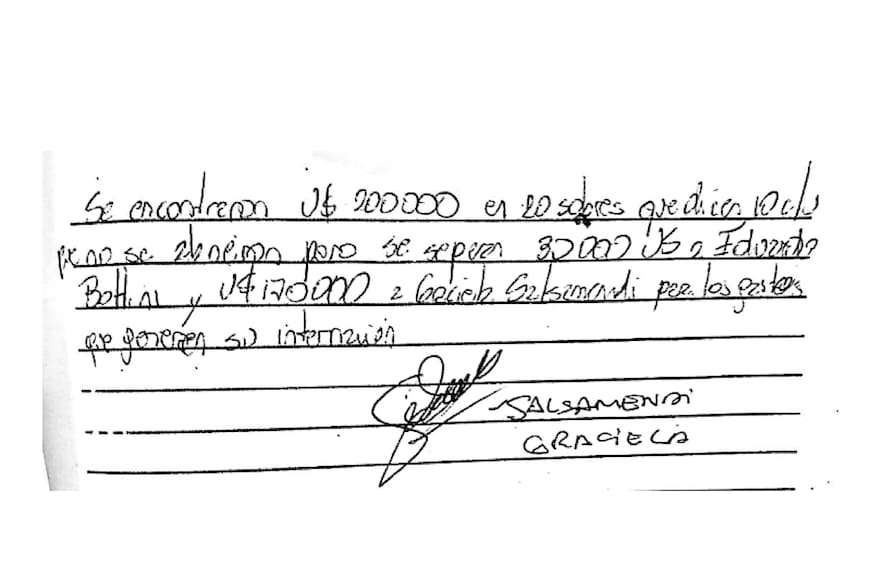 Se encontraron U$ 200000 en 20 sobres que dicen 10 c/u
que no se abrieron pero se separan 30000 U$ a Eduardo
Bottini y U$ 170000 a Graciela Salsamendi para los gastos
que generen su internación
SALSAMENDI
GRACIELA